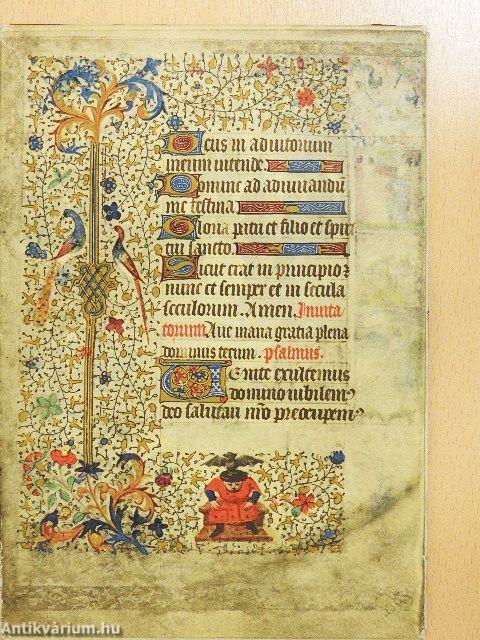 Deus in adiutorium
meum intende
Domine ad adiuuandū
me festina
Gloria patri et filio et spiri
tui sancto
Sicut erat in principio ⁊
nunc et semper et in secula
seculorum. Amen. Inuita
torium. Aue maria gratia plena
dominus tecum. psalmus.
Uenite exultemus
domino iubilem⁹
deo salutari nr̄o preocupem⁹
Antikvárium.hu